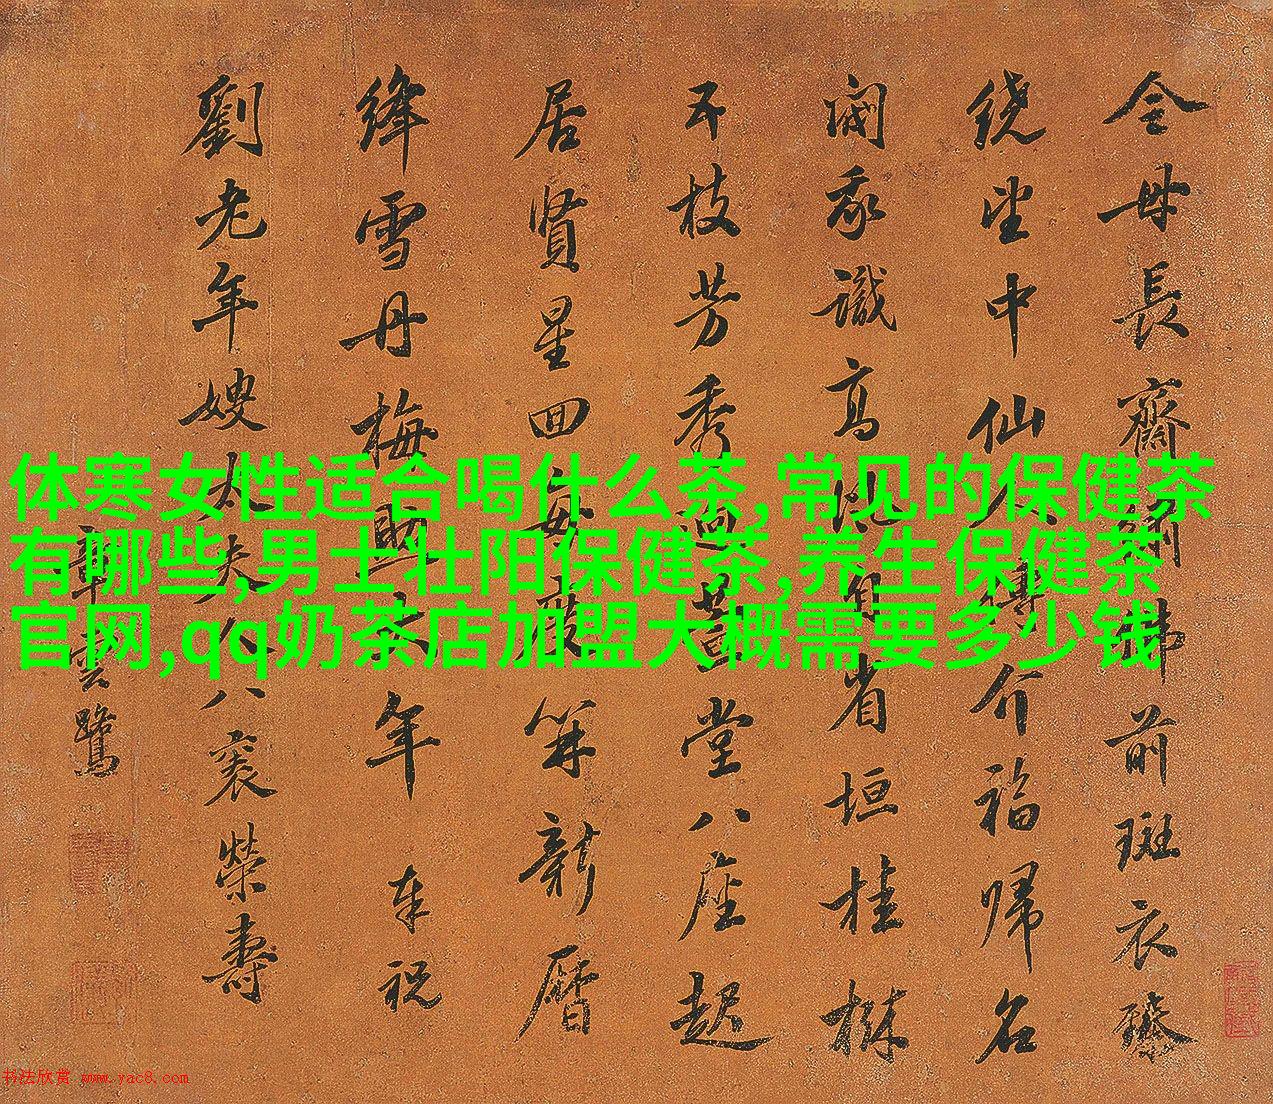 母長齋佛前斑衣
繞坐中仙介福歸名
識高省垣桂林
不枝芳秀過萱堂八座起
居賢星回每度筭新曆
絳雪丹梅年 奉祝
劉老年嫂太夫八袠榮壽
章雲鷺
体寒女性适合喝什么茶,常见的保健茶
有哪些,男士壮阳保健茶,养生保健茶
官网,qq奶茶店加盟大概需要多少钱
书法欣赏 www.yac8.com